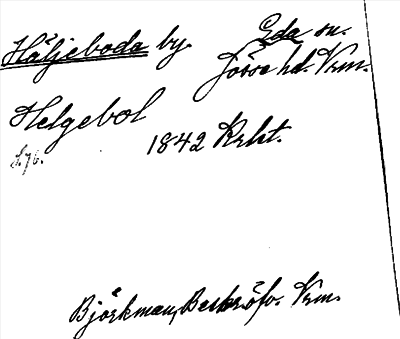 Häljeboda by. Eda sn.
Jösse hd. Vrm.
Helgebol
1842 Krkt.
s. 76.
Björkman, Beskrifn. Vrm.